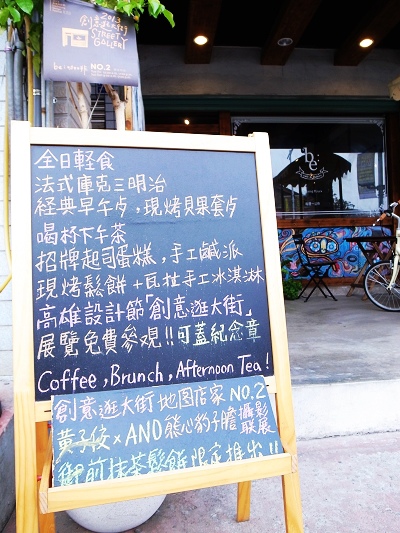 2013
創意逛大街
STREET
GALLERY
NO.2
be
全日輕食
法式庫克三明治
經典早午歺，現烤貝果套歺
喝杯下午茶
招牌起司蛋糕，手工鹹派
現烤鬆餅＋瓦拉手工冰淇淋
高雄設計節「創意逛大街」
展覽免費參觀!!可蓋紀念章
Coffee, Brunch, Afternoon Tea!
創意逛大街地圖店家 NO.2
黃子佼×ANO熊心豹子膽攝影聯展
御前抹茶鬆餅限定推出!!